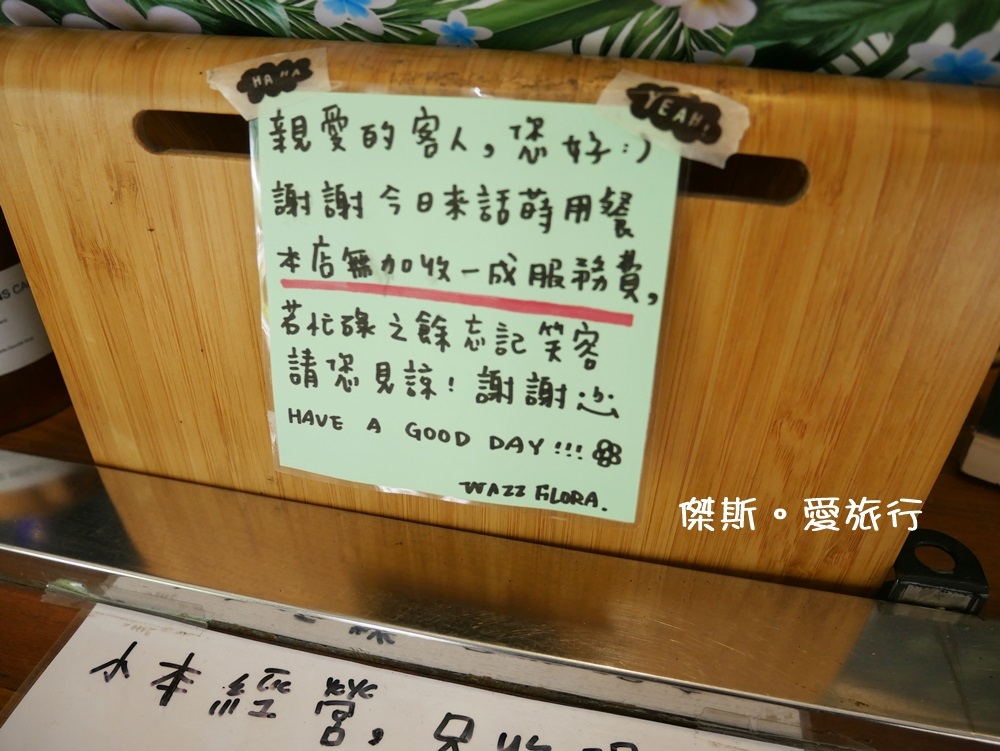 HA HA
YEAH!
親愛的客人,您好:)
謝謝今日來話蒔用餐
本店無加收一成服務費,
若忙碌之餘忘記笑容
請您見諒!謝謝
HAVE A GOOD DAY!!!
WAZZ FLORA.
傑斯。愛旅行
小本經營,只收現